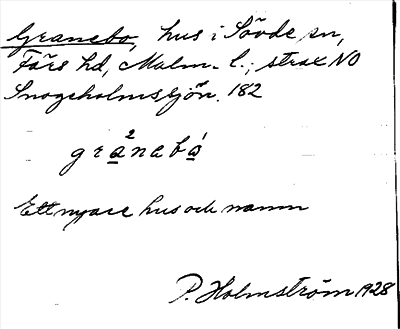 Granebo, hus i Sövde sn,
Färs hd, Malm. l.; strax NO
Snogeholmssjön. 182
gra²nebó
Ett nyare hus och namn
P. Holmström 1928